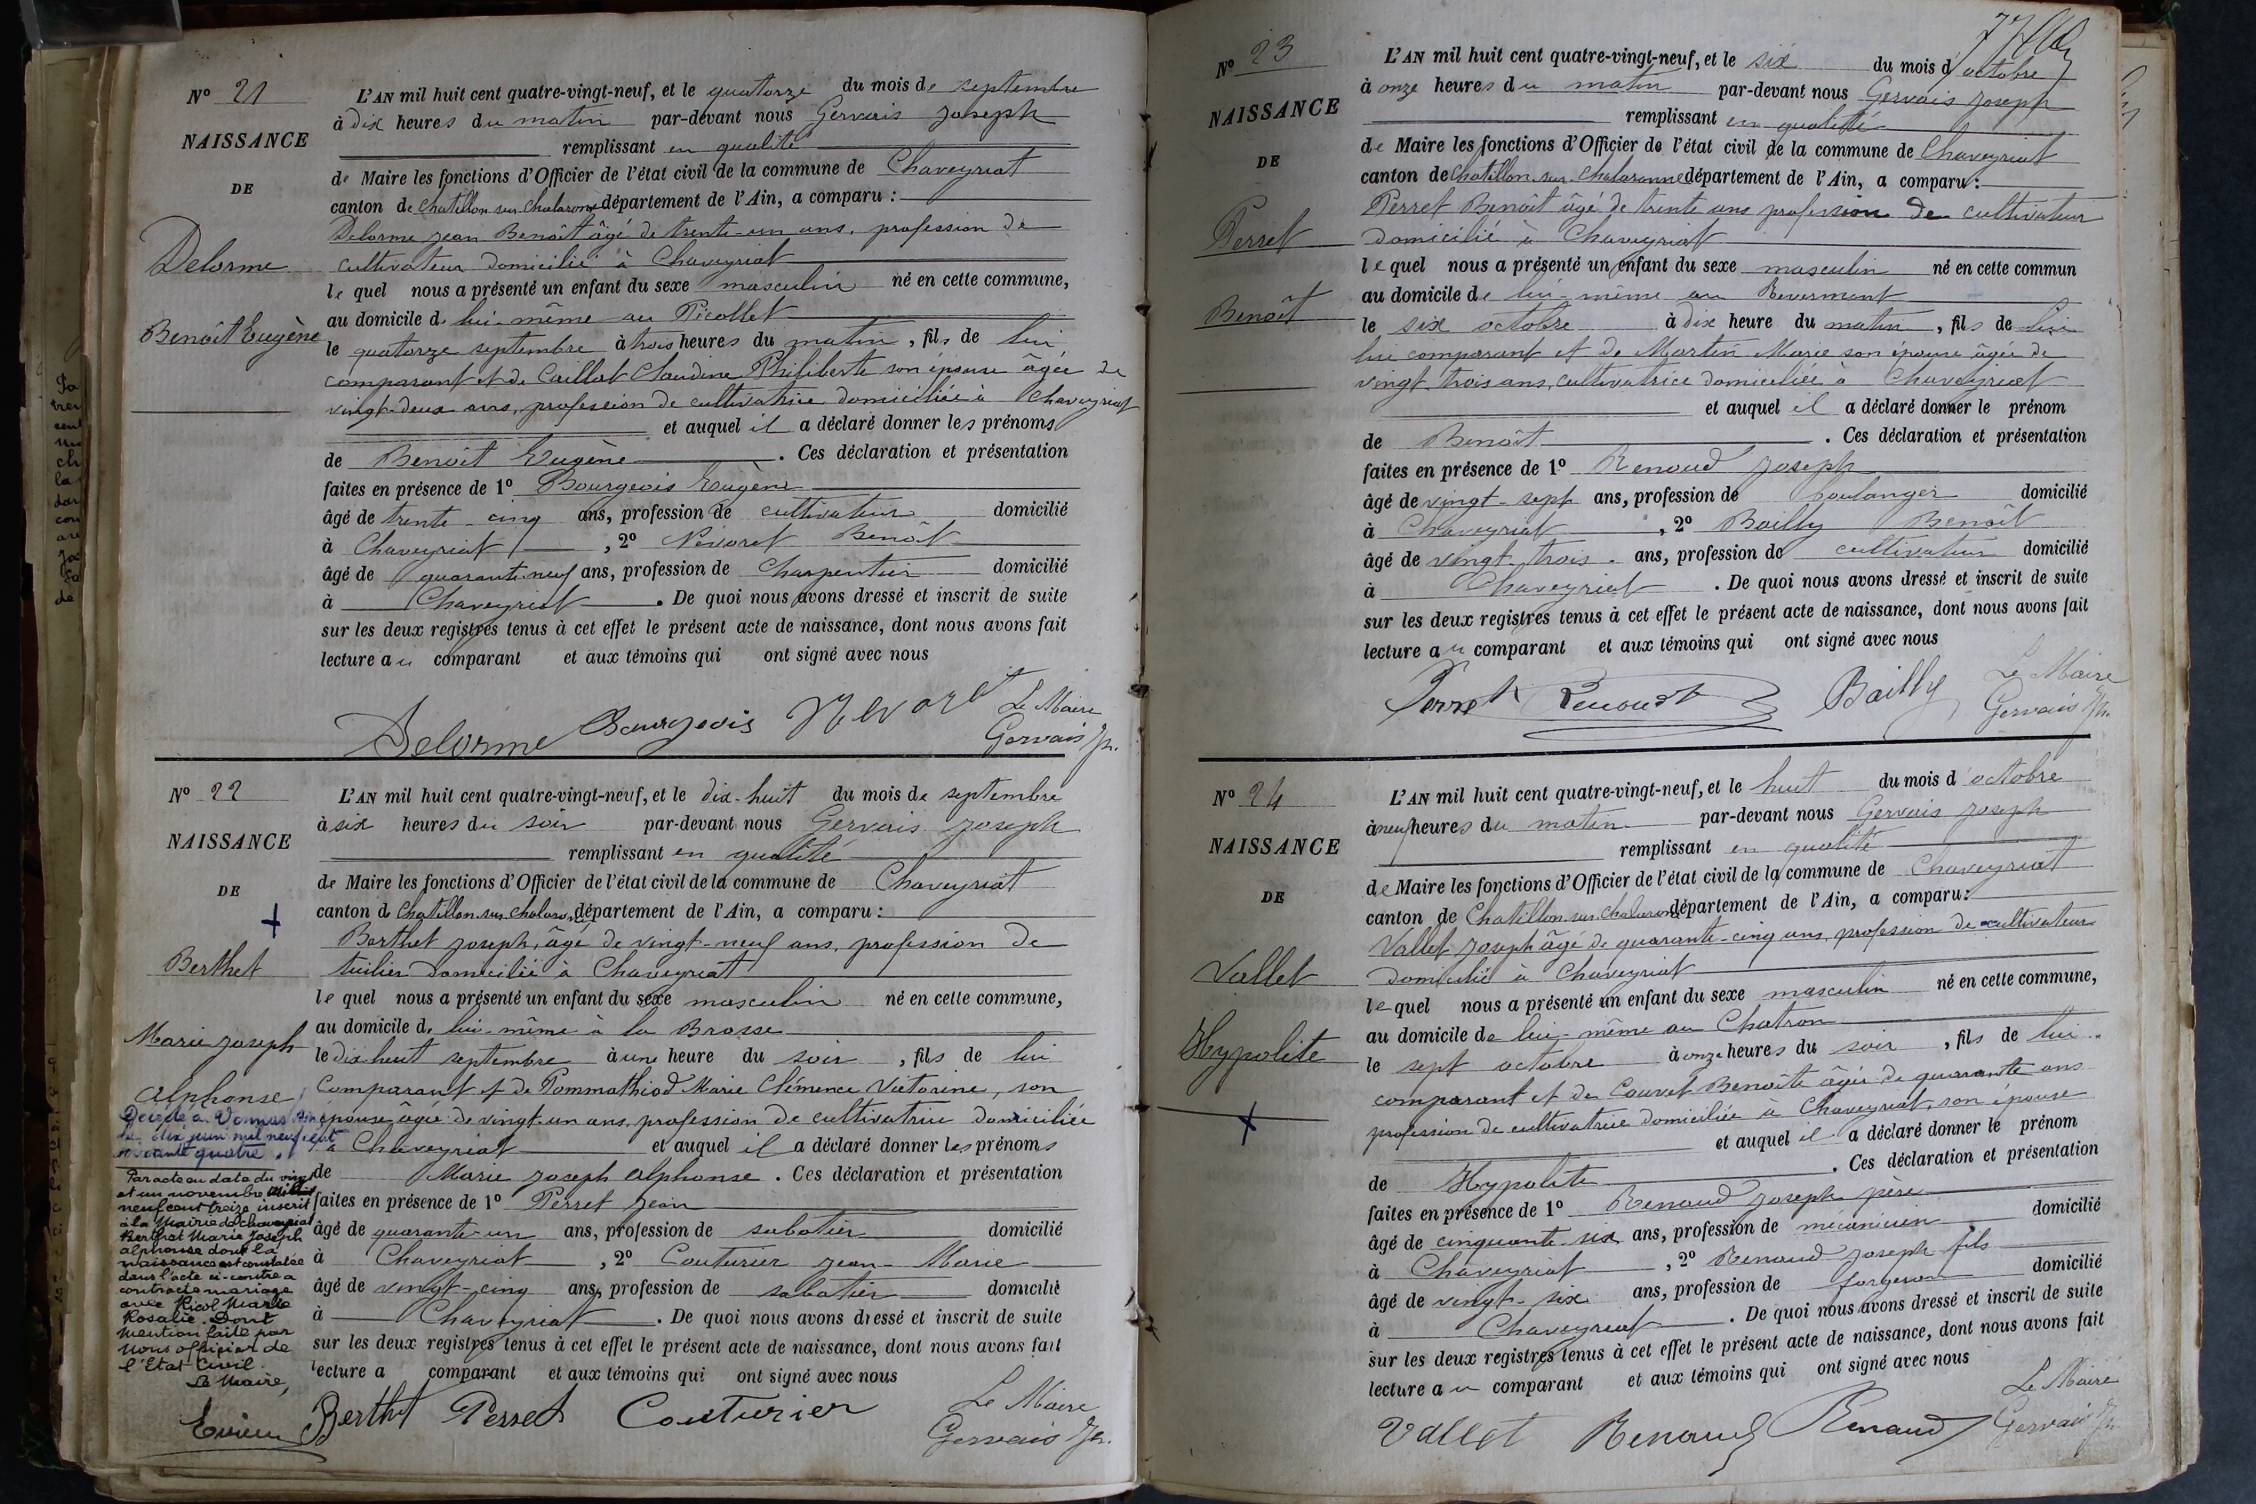 N° 21
NAISSANCE
DE
Delorme
Benoît Eugène
L'AN mil huit cent quatre-vingt-neuf, et le quatorze du mois de septembre
à dix heures du matin par-devant nous Gervais Joseph
remplissant en qualité
de Maire les fonctions d'Officier de l'état civil de la commune de Chaveyriat
canton de Chatillon sur Chalaronne département de l'Ain, a comparu :
Delorme Jean Benoît âgé de trente-un ans, profession de
cultivateur domicilié à Chaveyriat
le quel nous a présenté un enfant du sexe masculin né en cette commune,
au domicile de lui-même au Picollet
le quatorze septembre à trois heures du matin, fils de lui
comparant et de Caillat Claudine Philiberte son épouse âgée de
vingt-deux ans, profession de cultivatrice domiciliée à Chaveyriat
et auquel il a déclaré donner les prénoms
de Benoît Eugène. Ces déclaration et présentation
faites en présence de 1° Bourgeois Eugène
âgé de trente-cinq ans, profession de cultivateur domicilié
à Chaveyriat, 2° Nevoret Benoît
âgé de quarante-neuf ans, profession de charpentier domicilié
à Chaveyriat. De quoi nous avons dressé et inscrit de suite
sur les deux registres tenus à cet effet le présent acte de naissance, dont nous avons fait
lecture au comparant et aux témoins qui ont signé avec nous
Delorme Bourgeois Nevoret Le Maire
Gervais Jh.
N° 22
NAISSANCE
DE
Berthet
Marie Joseph
Alphonse
Décédé à Vonnas
le dix juin mil neuf cent
soixante quatre.
Par acte en date du vingt
et un novembre mil
neuf cent treize inscrit
à la Mairie de Chaveyriat
Berthet Marie Joseph
alphonse dont la
naissance est constatée
dans l'acte ci-contre a
contracté mariage
avec Picol Marie
Rosalie. Dont
mention faite par
nous officier de
l'Etat Civil.
Le Maire,
L'AN mil huit cent quatre-vingt-neuf, et le dix-huit du mois de septembre
à six heures du soir par-devant nous Gervais Joseph
remplissant en qualité
de Maire les fonctions d'Officier de l'état civil de la commune de Chaveyriat
canton de Chatillon sur Chalaronne département de l'Ain, a comparu :
Berthet Joseph, âgé de vingt-neuf ans, profession de
tuilier domicilié à Chaveyriat
le quel nous a présenté un enfant du sexe masculin né en cette commune,
au domicile de lui-même à la Brosse
le dix-huit septembre à une heure du soir, fils de lui
comparant et de Pommathiod Marie Clémence Victorine, son
épouse âgée de vingt-un ans, profession de cultivatrice domiciliée
à Chaveyriat et auquel il a déclaré donner les prénoms
de Marie Joseph Alphonse. Ces déclaration et présentation
faites en présence de 1° Perret Jean
âgé de quarante-un ans, profession de sabotier domicilié
à Chaveyriat, 2° Couturier Jean-Marie
âgé de vingt-cinq ans, profession de sabotier domicilié
à Chaveyriat. De quoi nous avons dressé et inscrit de suite
sur les deux registres tenus à cet effet le présent acte de naissance, dont nous avons fait
lecture a comparant et aux témoins qui ont signé avec nous
Berthet Perret Couturier Le Maire
Gervais Jh.
N° 23
NAISSANCE
DE
Perret
Benoît
L'AN mil huit cent quatre-vingt-neuf, et le six du mois d'octobre
à onze heures du matin par-devant nous Gervais Joseph
remplissant en qualité
de Maire les fonctions d'Officier de l'état civil de la commune de Chaveyriat
canton de Chatillon sur Chalaronne département de l'Ain, a comparu :
Perret Benoît âgé de trente ans profession de cultivateur
domicilié à Chaveyriat
le quel nous a présenté un enfant du sexe masculin né en cette commun
au domicile de lui-même au Revermont
le six octobre à dix heure du matin, fils de lui
lui comparant et de Martin Marie son épouse âgée de
vingt trois ans, cultivatrice domiciliée à Chaveyriat
et auquel il a déclaré donner le prénom
de Benoît. Ces déclaration et présentation
faites en présence de 1° Renoud Joseph
âgé de vingt-sept ans, profession de boulanger domicilié
à Chaveyriat, 2° Bailly Benoît
âgé de vingt-trois ans, profession de cultivateur domicilié
à Chaveyriat. De quoi nous avons dressé et inscrit de suite
sur les deux registres tenus à cet effet le présent acte de naissance, dont nous avons fait
lecture au comparant et aux témoins qui ont signé avec nous
Perret Renoud Bailly Le Maire
Gervais Jh.
N° 24
NAISSANCE
DE
Vallet
Hypolite
L'AN mil huit cent quatre-vingt-neuf, et le huit du mois d'octobre
à neuf heures du matin par-devant nous Gervais Joseph
remplissant en qualité
de Maire les fonctions d'Officier de l'état civil de la commune de Chaveyriat
canton de Chatillon sur Chalaronne département de l'Ain, a comparu :
Vallet Joseph âgé de quarante-cinq ans, profession de cultivateur
domicilié à Chaveyriat
le quel nous a présenté un enfant du sexe masculin né en cette commune,
au domicile de lui-même au Chatron
le sept octobre à onze heures du soir, fils de lui
comparant et de Couvet Benoîte âgée de quarante ans
profession de cultivatrice domiciliée à Chaveyriat, son épouse
et auquel il a déclaré donner le prénom
de Hypolite. Ces déclaration et présentation
faites en présence de 1° Renoud Joseph père
âgé de cinquante-six ans, profession de mécanicien domicilié
à Chaveyriat, 2° Renoud Joseph fils
âgé de vingt-six ans, profession de forgeron domicilié
à Chaveyriat. De quoi nous avons dressé et inscrit de suite
sur les deux registres tenus à cet effet le présent acte de naissance, dont nous avons fait
lecture au comparant et aux témoins qui ont signé avec nous
Vallet Renoud Renaud Le Maire
Gervais Jh.